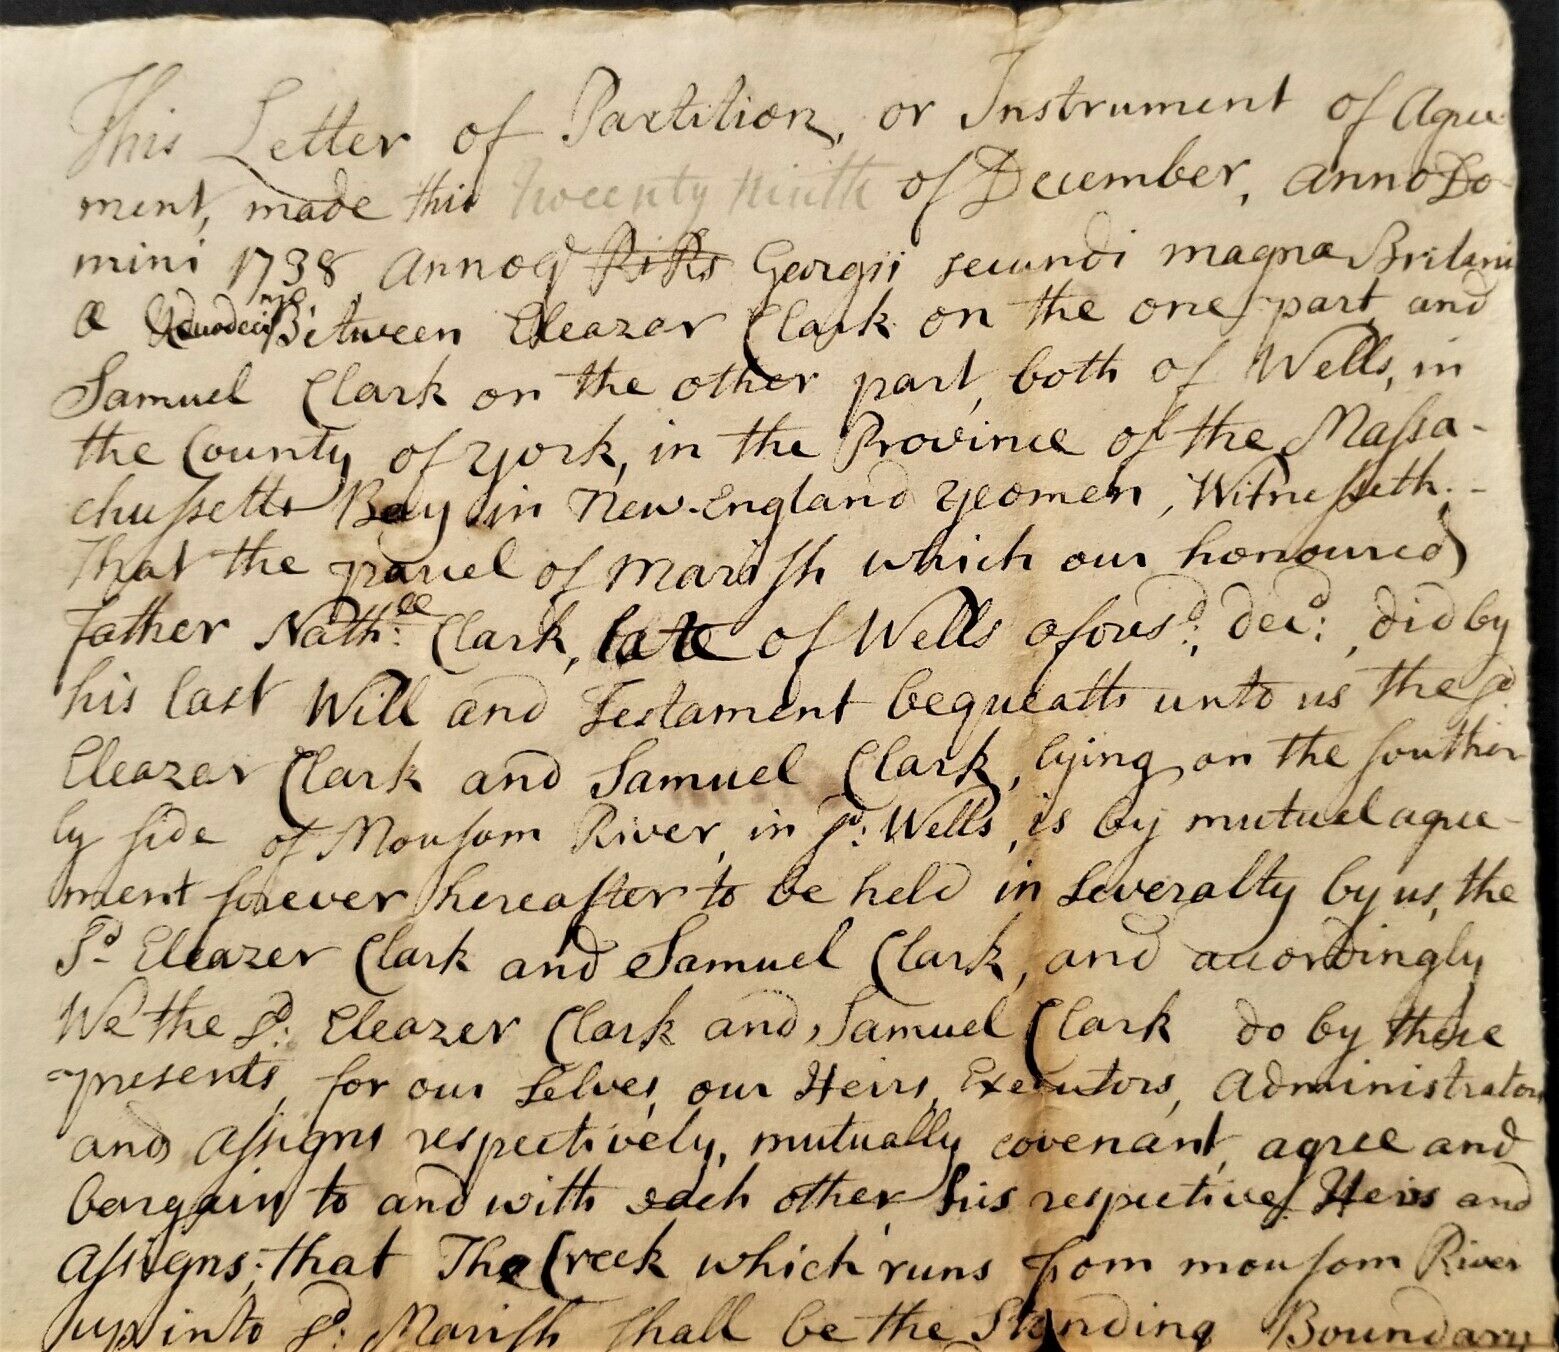 This Letter of Partition, or Instrument of Agree-
ment, made this twenty ninth of December, Anno Do-
mini 1738, Annoq RiRs Georgii secundi magnæ Britani
æ Between Eleazar Clark on the one part, and
Samuel Clark on the other part, both of Wells, in
the County of York, in the Province of the Maſsa-
chuſsetts Bay in New-England Yeomen, Witneſseth:-
That the parcel of Mariſh which our honoured
father Nath:ll Clark, late of Wells aforesd: decd:, did by
his last Will and Testament bequeath unto us the sd
Eleazar Clark and Samuel Clark, lying on the ſouther-
ly ſide of Mouſom River, in sd: Wells, is by mutual agree-
ment forever hereafter to be held in Severalty by us, the
Sd Eleazer Clark and Samuel Clark, and accordingly
We the Sd: Eleazer Clark and Samuel Clark do by these
presents, for our Selves, our Heirs, Executors, Administrators
and Aſsigns respectively, mutually covenant, agree and
bargain to and with each other his respective Heirs and
Aſsigns; that The Creek which runs from mouſom River
up into Sd: Mariſh ſhall be the Standing Boundary